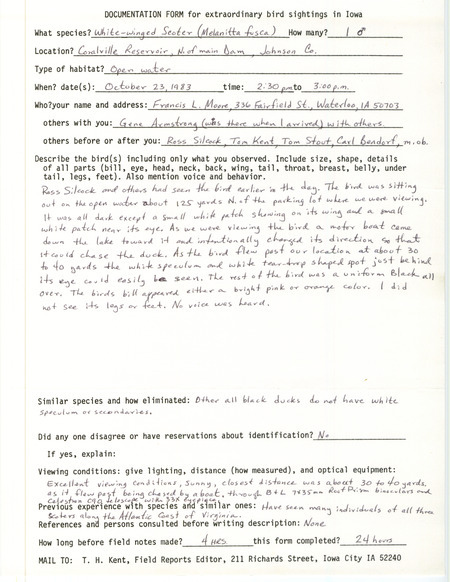 DOCUMENTATION FORM for extraordinary bird sightings in Iowa
What species? White-winged Scoter (Melanitta fusca) How many? 1 ♂
Location? Coralville Reservoir, N. of main Dam, Johnson Co.
Type of habitat? Open water
When? date(s): October 23, 1983 time: 2:30 pm to 3:00 p.m.
Who? your name and address: Francis L. Moore, 336 Fairfield St., Waterloo, IA 50703
others with you: Gene Armstrong (was there when I arrived) with others.
others before or after you: Ross Silcock, Tom Kent, Tom Stout, Carl Bendorf, m.ob.
Describe the bird(s) including only what you observed. Include size, shape, details
of all parts (bill, eye, head, neck, back, wing, tail, throat, breast, belly, under
tail, legs, feet). Also mention voice and behavior.
Ross Silcock and others had seen the bird earlier in the day. The bird was sitting
out on the open water about 125 yards N. of the parking lot where we were viewing.
It was all dark except a small white patch showing on its wing and a small
white patch near its eye. As we were viewing the bird a motor boat came
down the lake toward it and intentionally changed its direction so that
it could chase the duck. As the bird flew past our location at about 30
to 40 yards the white speculum and white tear-drop shaped spot just behind
its eye could easily be seen. The rest of the bird was a uniform Black all
over. The birds bill appeared either a bright pink or orange color. I did
not see its legs or feet. No voice was heard.
Similar species and how eliminated: Other all black ducks do not have white
speculum or secondaries.
Did any one disagree or have reservations about identification? No
If yes, explain:
Viewing conditions: give lighting, distance (how measured), and optical equipment:
Excellent viewing conditions, sunny, closest distance was about 30 to 40 yards.
as it flew past being chased by a boat, through B+L 7x35mm Roof Prism binoculars and
Celestron C90 telescope with 33X eyepiece.
Previous experience with species and similar ones: Have seen many individuals of all three
Scoters along the Atlantic Coast of Virginia.
References and persons consulted before writing description: None
How long before field notes made? 4 Hrs. this form completed? 24 hours
MAIL TO: T. H. Kent, Field Reports Editor, 211 Richards Street, Iowa City IA 52240